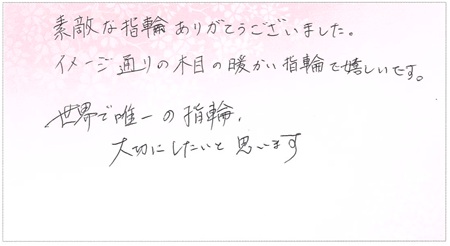 素敵な指輪ありがとうございました。
イメージ通りの木目の暖かい指輪で嬉しいです。
世界で唯一の指輪、
大切にしたいと思います